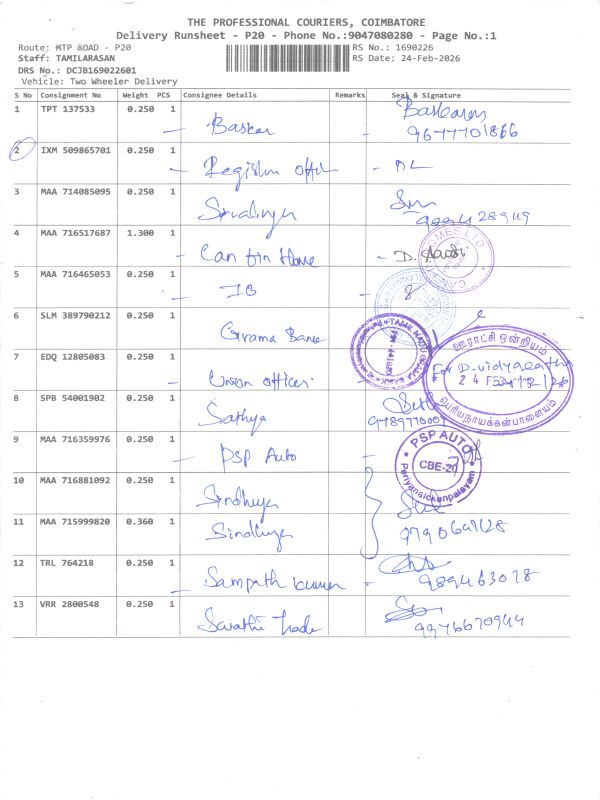 THE PROFESSIONAL COURIERS, COIMBATORE
Delivery Runsheet - P20 - Phone No.:9047080280 - Page No.:1
Route: MTP &OAD - P20
RS No.: 1690226
Staff: TAMILARASAN
RS Date: 24-Feb-2026
DRS No.: DCJB169022601
Vehicle: Two Wheeler Delivery
S No Consignment No Weight PCS Consignee Details Remarks Seal & Signature
1 TPT 137533 0.250 1 Baskar Baskaran
9677701866
2 IXM 509865701 0.250 1 Register office - DL
3 MAA 714085095 0.250 1
4 MAA 716517687 1.300 1 Can fin Home - D.
5 MAA 716465053 0.250 1 - IB
6 SLM 389790212 0.250 1 Grama Bank
7 EDQ 12805083 0.250 1 Union officer. For D.vidya
ஊராட்சி ஒன்றியம்
பெரியநாயக்கன்பாளையம்
8 SPB 54001902 0.250 1 Sathya
9789770007
9 MAA 716359976 0.250 1 PSP Auto
PSP AUTO
CBE-20
Periyanaickenpalayam
10 MAA 716881092 0.250 1 Sindhuya
11 MAA 715999820 0.360 1 Sindhuya
12 TRL 764218 0.250 1 Sampath kumar
13 VRR 2800548 0.250 1 Sarathi Trade
9976670944